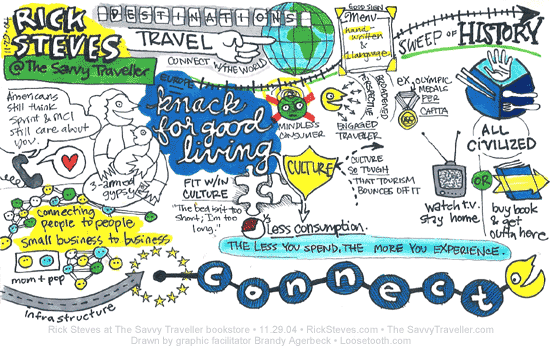 RICK
STEVES
11·29·04
@ The Savvy Traveller
DESTINATIONS
TRAVEL
CONNECT W/ THE WORLD
GOOD SIGN
Menu
hand-
written &
1 language
SWEEP OF HISTORY
Americans
still think
Sprint & MCI
still care about
you.
3-armed
gypsy
EUROPE
knack
for good
living
MINDLESS
CONSUMER
BROADENED
PERSPECTIVE
ENGAGED
TRAVELER
EX. OLYMPIC
MEDALS
PER
CAPITA
ALL
CIVILIZED
FIT W/IN
CULTURE
"The bed isn't too
short; I'm too
long."
CULTURE
CULTURE
SO TUFGH
THAT TOURISM
BOUNCES OFF IT
watch t.v.
stay home
OR
buy book
& get
outta here
connecting
people to people
small business to business
mom + pop
infrastructure
Less consumption.
THE LESS YOU SPEND, THE MORE YOU EXPERIENCE.
connect
Rick Steves at The Savvy Traveller bookstore • 11.29.04 • RickSteves.com • TheSavvyTraveller.com
Drawn by graphic facilitator Brandy Agerbeck • Loosetooth.com